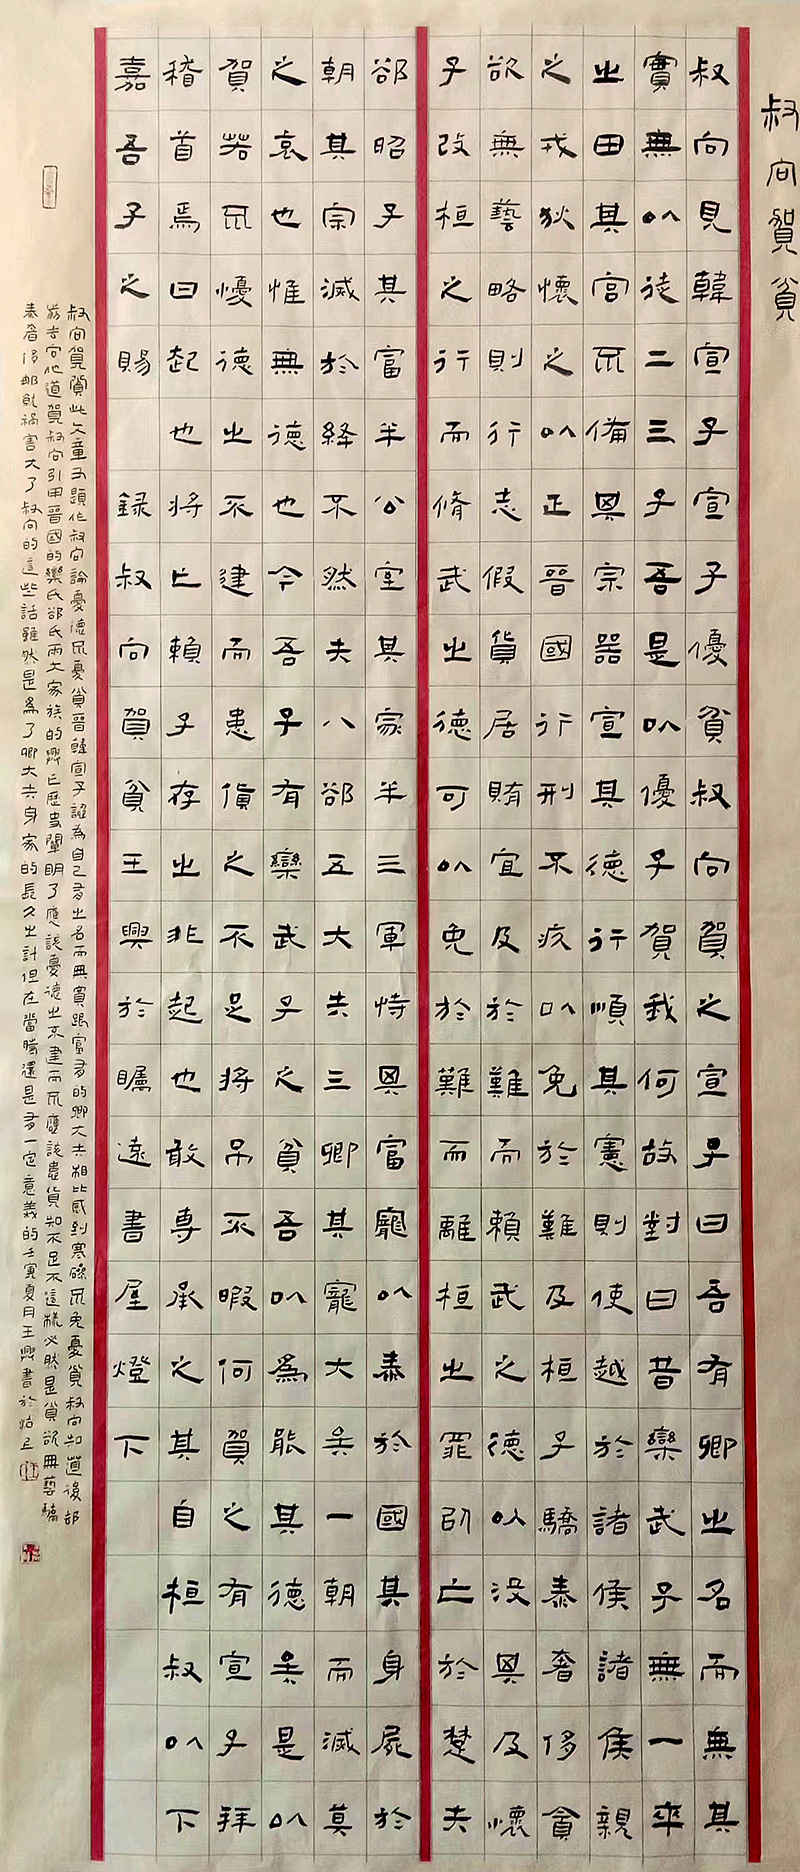 叔向賀貧
叔向見韓宣子宣子優貧叔向賀之宣子曰吾有卿之名而無其
實無以從二三子吾是以優子賀我何故對曰昔欒武子無一卒
之田其宮不備其宗器宣其德行順其憲則使越於諸侯諸侯親
之戎狄懷之以正晉國行刑不疚以免於難及桓子驕泰奢侈貪
欲無藝略則行志假貨居賄宜及於難而賴武之德以没其及懷
子改桓之行而脩武之德可以免於難而離桓之罪以亡於楚夫
郤昭子其富半公室其家半三軍恃其富寵以泰於國其身屍於
朝其宗滅於絳不然夫八郤五大夫三卿其寵大矣一朝而滅莫
之哀也惟無德也今吾子有欒武子之貧吾以為能其德矣是以
賀若不憂德之不建而患貨之不足將吊不暇何賀之有宣子拜
稽首焉曰起也將亡賴子存之非起也敢專承之其自桓叔以下
嘉吾子之賜 錄叔向賀貧王興於矚遠書屋燈下
叔向賀貧此文章另題作叔向論憂德不憂貧晉韓宣子認為自己有之名而無實跟富有的卿大夫相比感到寒磣不免憂貧叔向知道後卻
前去向他道賀叔向引用晉國的欒氏郤氏兩大家族的興亡歷史闡明了應該憂德之不建而不應該患貨知不足不這樣必然是貪欲無藝驕
泰奢侈那就禍害大了叔向的這些話雖然是為了卿大夫身家的長久之計但在當時還是有一定意義的壬寅夏月王興書於